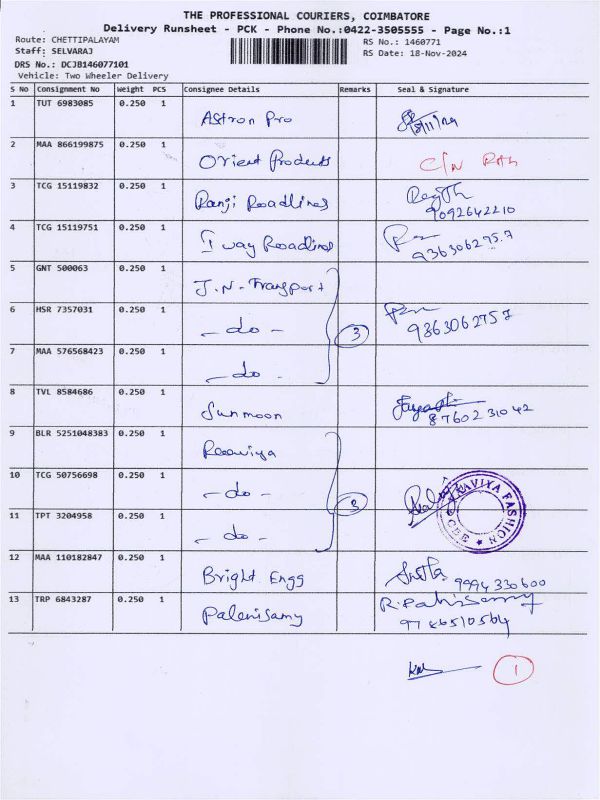 THE PROFESSIONAL COURIERS, COIMBATORE
Delivery Runsheet - PCK - Phone No.:0422-3505555 - Page No.:1
Route: CHETTIPALAYAM
RS No.: 1460771
Staff: SELVARAJ
RS Date: 18-Nov-2024
DRS No.: DCJB146077101
Vehicle: Two Wheeler Delivery
S No Consignment No Weight PCS Consignee Details Remarks Seal & Signature
1 TUT 6983085 0.250 1 Astron Pro
2 MAA 866199875 0.250 1 Orient Products C/N
3 TCG 15119832 0.250 1 Ranji Roadlines
9092642210
4 TCG 15119751 0.250 1 I way Roadlines
9363062757
5 GNT 500063 0.250 1 J.N. Transport
6 HSR 7357031 0.250 1 - do - 3 9363062757
7 MAA 576568423 0.250 1 - do -
8 TVL 8584686 0.250 1 Sunmoon
8760231042
9 BLR 5251048383 0.250 1
10 TCG 50756698 0.250 1 - do - 3
11 TPT 3204958 0.250 1 - do -
FASHION CBE
12 MAA 110182847 0.250 1 Bright Engg 9994330600
13 TRP 6843287 0.250 1 Palanisamy R. Palanisamy
9786510564
1